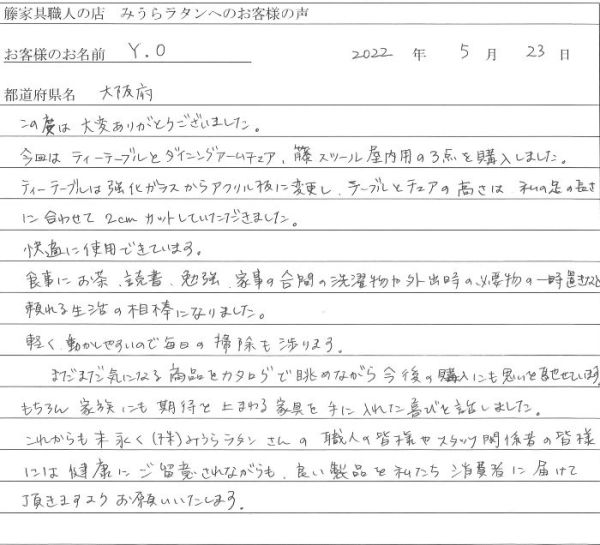 籐家具職人の店 みうらラタンへのお客様の声
お客様のお名前 Y.O 2022 年 5 月 23 日
都道府県名 大阪府
この度は大変ありがとうございました。
今回はティーテーブルとダイニングアームチェア、籐スツール屋内用の3点を購入しました。
ティーテーブルは強化ガラスからアクリル板に変更し、テーブルとチェアの高さは、私の足の長さ
に合わせて2cmカットしていただきました。
快適に使用できています。
食事にお茶、読書、勉強、家事の合間の洗濯物や外出時の必要物の一時置きなど
頼れる生活の相棒になりました。
軽く動かしやすいので毎日の掃除も捗ります。
まだまだ気になる商品をカタログで眺めながら今後の購入にも思いを馳せています。
もちろん家族にも期待を上まわる家具を手に入れた喜びを話しました。
これからも末永く(株)みうらラタンさんの職人の皆様やスタッフ関係者の皆様
には健康にご留意されながらも、良い製品を私たち消費者に届けて
頂きますようお願いいたします。